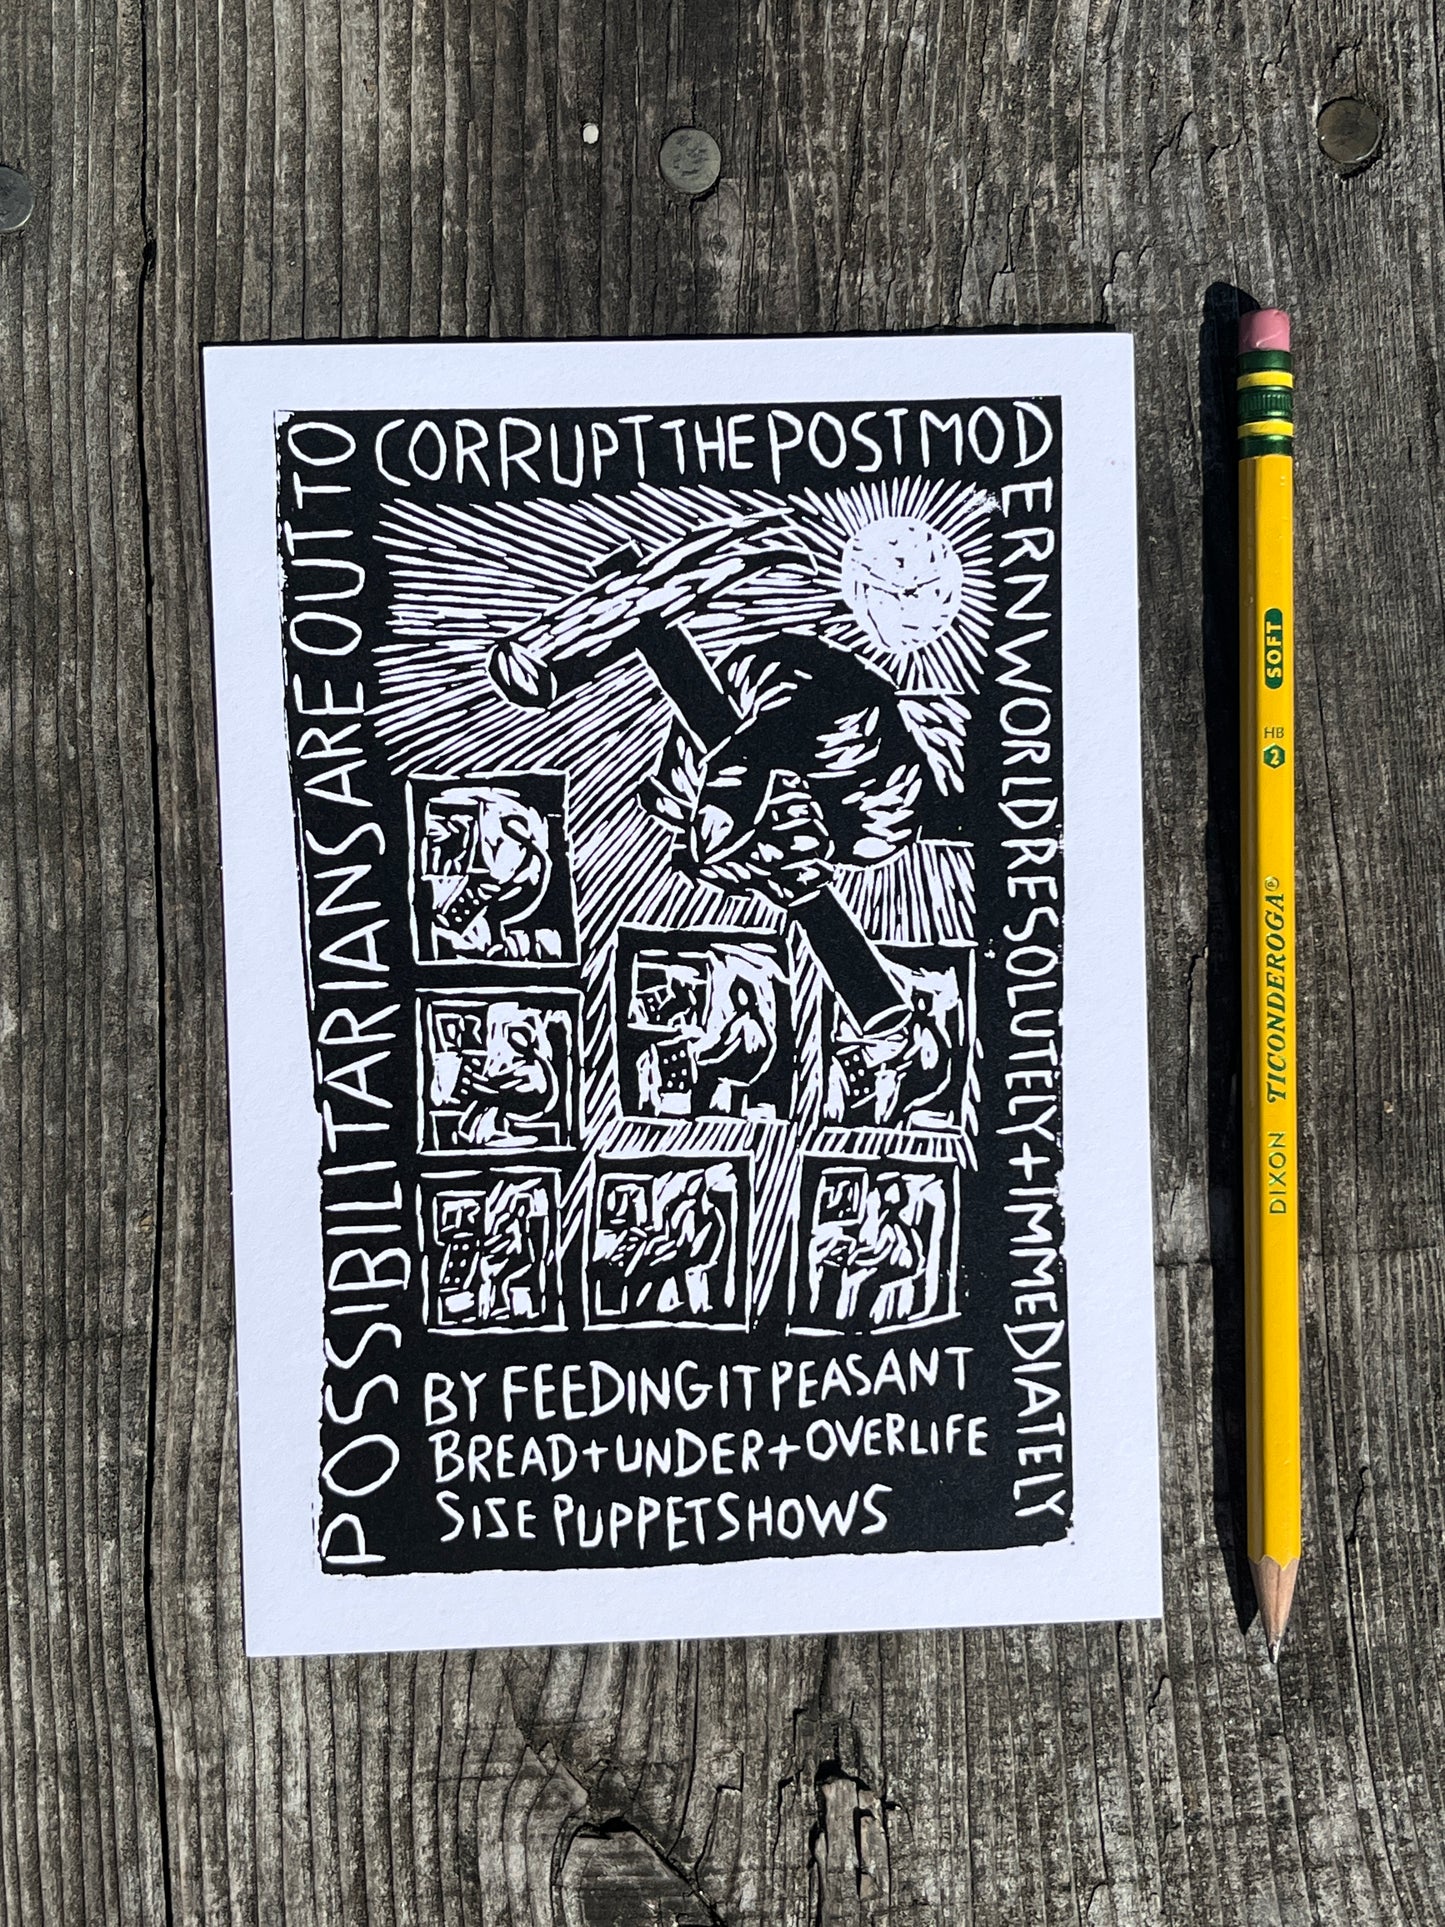 POSSIBILITARIANS ARE OUT TO
CORRUPT THE POSTMODERN WORLD RESOLUTELY + IMMEDIATELY
BY FEEDING IT PEASANT
BREAD + UNDER + OVERLIFE
SIZE PUPPETSHOWS
DIXON TICONDEROGA® HB 2 SOFT